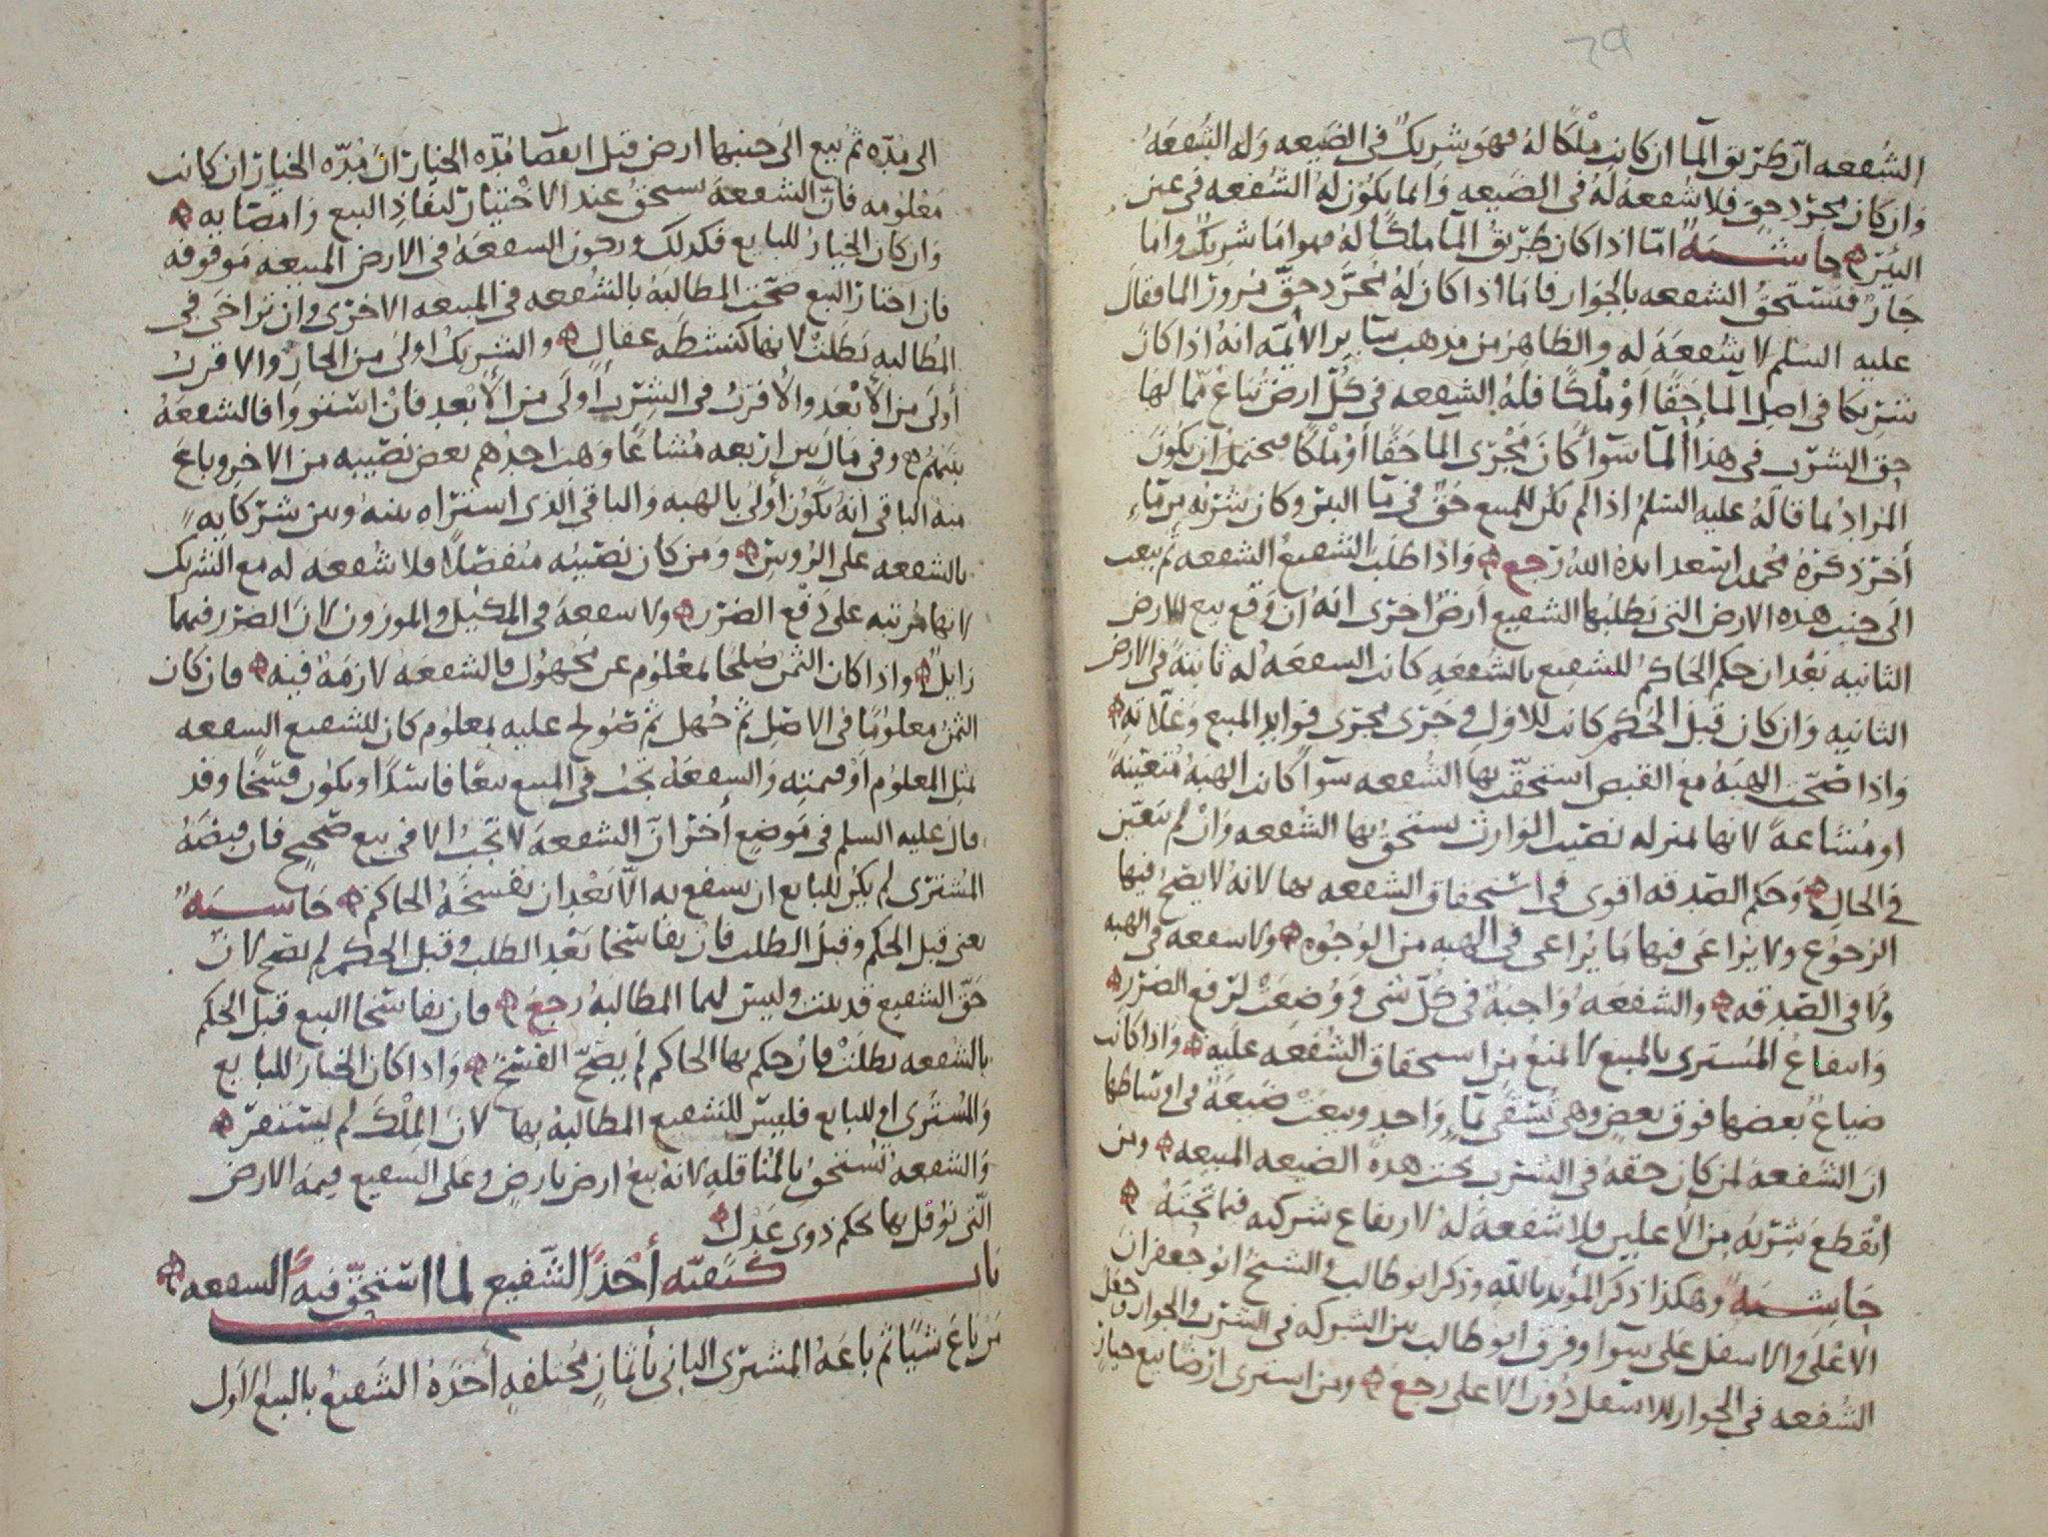 الشفعه ان طريق الما ان كانت ملكا له فهو شريك في الضيعه وله الشفعه
وان كان مجرد حق فلا شفعه له في الضيعه وانما يكون له الشفعه في عين
البئر حاشيه اما اذا كان طريق الما ملكا له فهو اما شريك واما
جار فيستحق الشفعه بالجوار فاما اذا كان له مجرد حق مرور الما فقال
عليه السلم لا شفعه له والظاهر من مذهب ساير الائمه انه اذا كان
شريكا في اصل الما حقا او ملكا فله الشفعه في كل ارض تباع مما لها
حق الشرب في هذا الما سوا كان مجرى الما حقا او ملكا فيحتمل ان يكون
المراد بما قاله عليه السلم اذا لم يكن للمبيع حق في ما البئر وكان شربه من ماء
اخر ذكره محمد اسعد ايده الله رجع واذا طلب الشفيع الشفعه ثم بيعت
الى جنب هذه الارض التي يطلبها الشفيع ارض اخرى انه ان وقع بيع الارض
الثانيه بعد ان حكم الحاكم للشفيع بالشفعه كانت الشفعه له ثابته في الارض
الثانيه وان كان قبل الحكم كانت للاول وجرى مجرى فوايد المبيع وغلاته
واذا صحت الهبه مع القبض استحقت بها الشفعه سوا كانت الهبه متعينه
او مشاعه لانها بمنزله نصيب الوارث يستحق بها الشفعه وان لم يتعين
في الحال وحكم الصدقه اقوى في استحقاق الشفعه بها لانه لا يصح فيها
الرجوع ولا يراعى فيها ما يراعى في الهبه من الوجوه ولا شفعه في الهبه
ولا في الصدقه والشفعه واجبة في كل شي ووضعت لرفع الضرر
وانتفاع المشترى بالمبيع لا يمنع من استحقاق الشفعه عليه واذا كانت
ضياع بعضها فوق بعض وهي تسقى بماء واحد وبيعت ضيعة في اوساطها
ان الشفعه لمن كان حقه في الشرب تحت هذه الضيعه المبيعه ومن
انقطع شربه من الاعلين فلا شفعه له لارتفاع شركته فيما تحته
حاشيه وهكذا ذكر المؤيد بالله وذكر ابو طالب والشيخ ابو جعفر ان
الاعلى والاسفل على سوا وفرق ابو طالب بين الشركه في الشرب والجوار وجعل
الشفعه في الجوار للاسفل دون الاعلى رجع ومن اشترى ارضا بيع خيار
الى مده ثم بيع الى جنبها ارض قبل انقضا مده الخيار ان مده الخيار ان كانت
معلومه فان الشفعه تستحق عند الاختيار لنفاذ البيع وامضايه
وان كان الخيار للبايع فكذلك وتكون الشفعه في الارض المبيعه موقوفه
فان اختار البيع صحت المطالبه بالشفعه في المبيعه الاخرى وان تراخى في
المطالبه بطلت لانها كنشطه عقال والشريك اولى من الجار والاقرب
أولى من الأبعد والأقرب في الشرب أولى من الأبعد فان استووا فالشفعه
بينهم وفي مال بين اربعه مشاعا وهب احدهم بعض نصيبه من الاخر وباع
منه الباقي انه يكون أولى بالهبه والباقي الذى اشتراه بينه وبين شركايه
بالشفعه على الروس ومن كان نصيبه منفصلا فلا شفعه له مع الشريك
لانها مرتبه على دفع الضرر ولا شفعه في المكيل والموزون لان الضرر فيهما
زايل واذا كان الثمن صلحا بمعلوم عن مجهول فالشفعه لازمه فيه فان كان
الثمن معلوما في الاصل ثم جهل ثم صولح عليه بمعلوم كان للشفيع الشفعه
بمثل المعلوم او قيمته والشفعه تجب في المبيع بيعا فاسدا ويكون فسخا وقد
قال عليه السلم في موضع أخر ان الشفعه لا تجب الا في بيع صحيح فان قبضه
المشترى لم يكن للبايع ان يشفع به الا بعد ان يفسخه الحاكم حاشيه
يعني قبل الحكم وقبل الطلب فان تفاسخا بعد الطلب وقبل الحكم لم يصح لان
حق الشفيع قد ثبت وليس لهما المطالبه رجع فان تفاسخا البيع قبل الحكم
بالشفعه بطلت فان حكم بها الحاكم لم يصح الفسخ واذا كان الخيار للبايع
والمشترى او للبايع فليس للشفيع المطالبه بها لان الملك لم يستقر
والشفعه تستحق بالمناقله لانه بيع ارض بارض وعلى الشفيع قيمه الارض
التي نوقل بها بحكم ذوى عدل
باب كيفيه أخذ الشفيع لما استحق فيه الشفعه
من باع شيا ثم باعه المشترى الثاني بأثمان مختلفه أخذه الشفيع بالبيع الاول